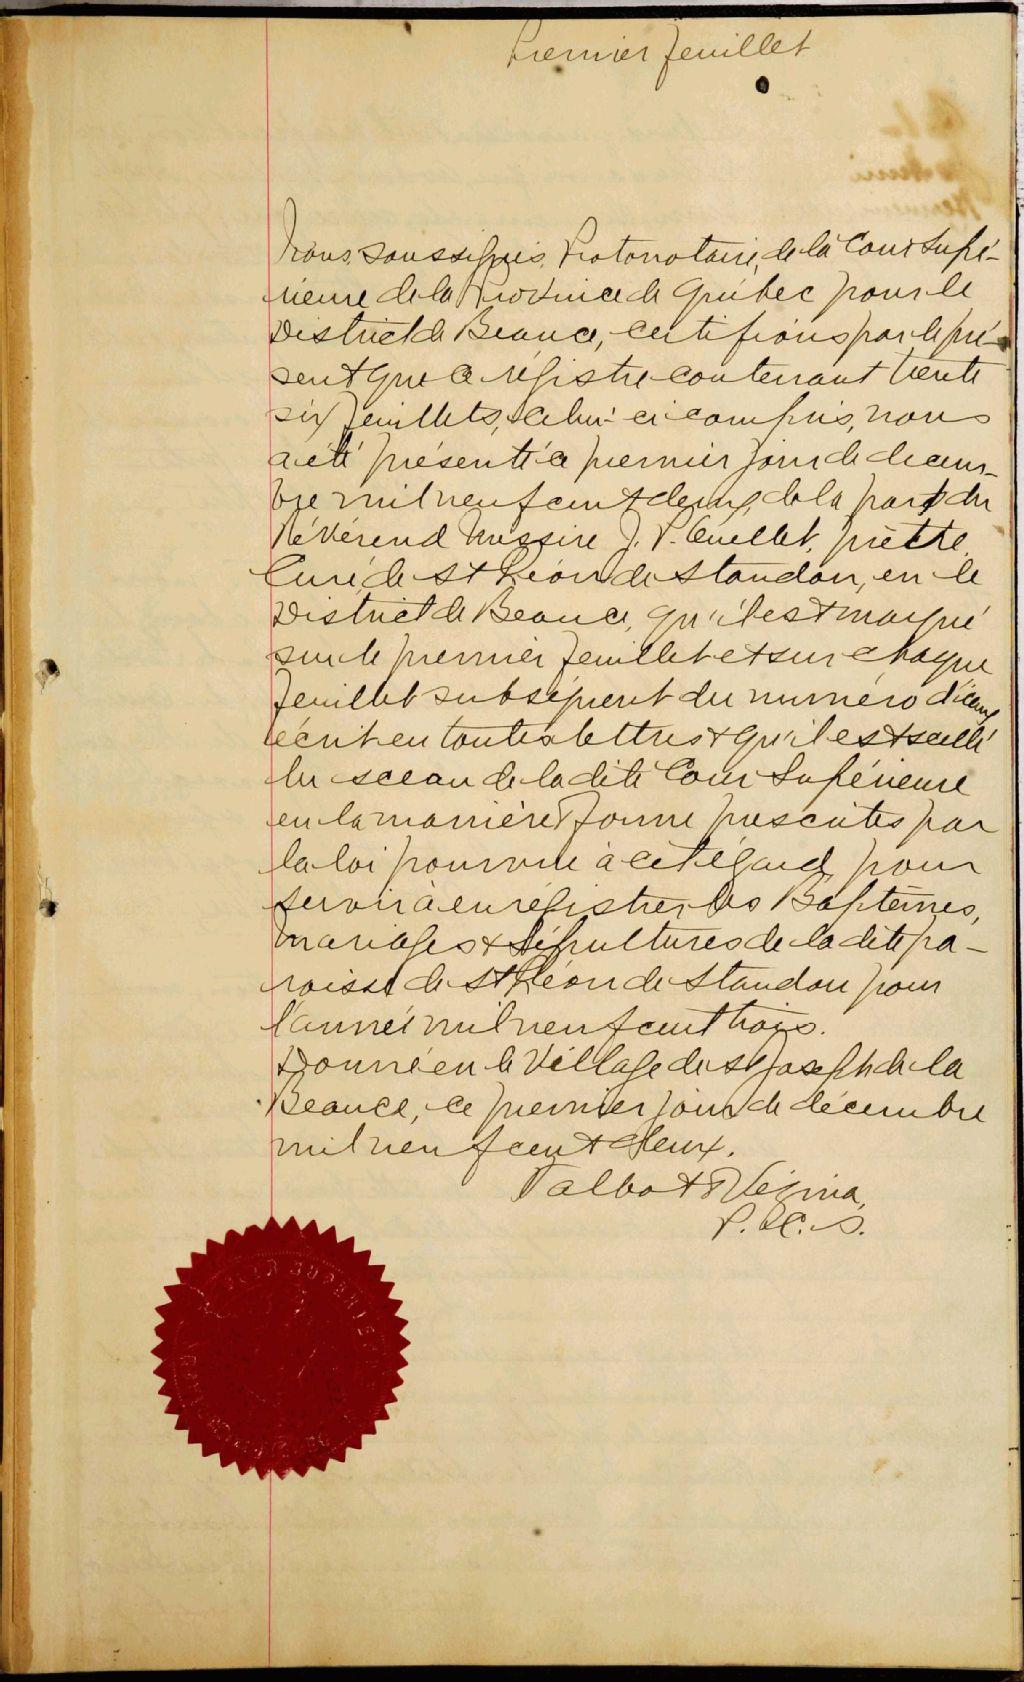 Premier feuillet
Nous, soussignés, Protonotaire, de la Cour Supé-
rieure de la Province de Québec pour le
District de Beauce, certifions par le pré-
sent que ce régistre contenant trente
six feuillets, celui-ci compris, nous
a été présenté ce premier jour de decem-
bre mil neuf cent deux, de la part du
Révérend Messire J. P. Ouellet, prêtre
Curé, de St Léon de Standon, en le
District de Beauce, qu'il est marqué
sur le premier feuillet et sur chaque
feuillet subséquent du numéro d'iceux
écrit en toutes lettres & qu'il est scellé
du sceau de la dite Cour Supérieure
en la manière & forme prescrites par
la loi pourvue à cet égard, pour
servir à enrégistrer les Baptêmes,
mariages & Sépultures de la dite pa-
roisse de St Léon de Standon pour
l'année mil neuf cent trois.
Donné en le Village de St Joseph de la
Beauce, ce premier jour de décembre
mil neuf cent deux.
Talbot & Vézina,
P. C. S.